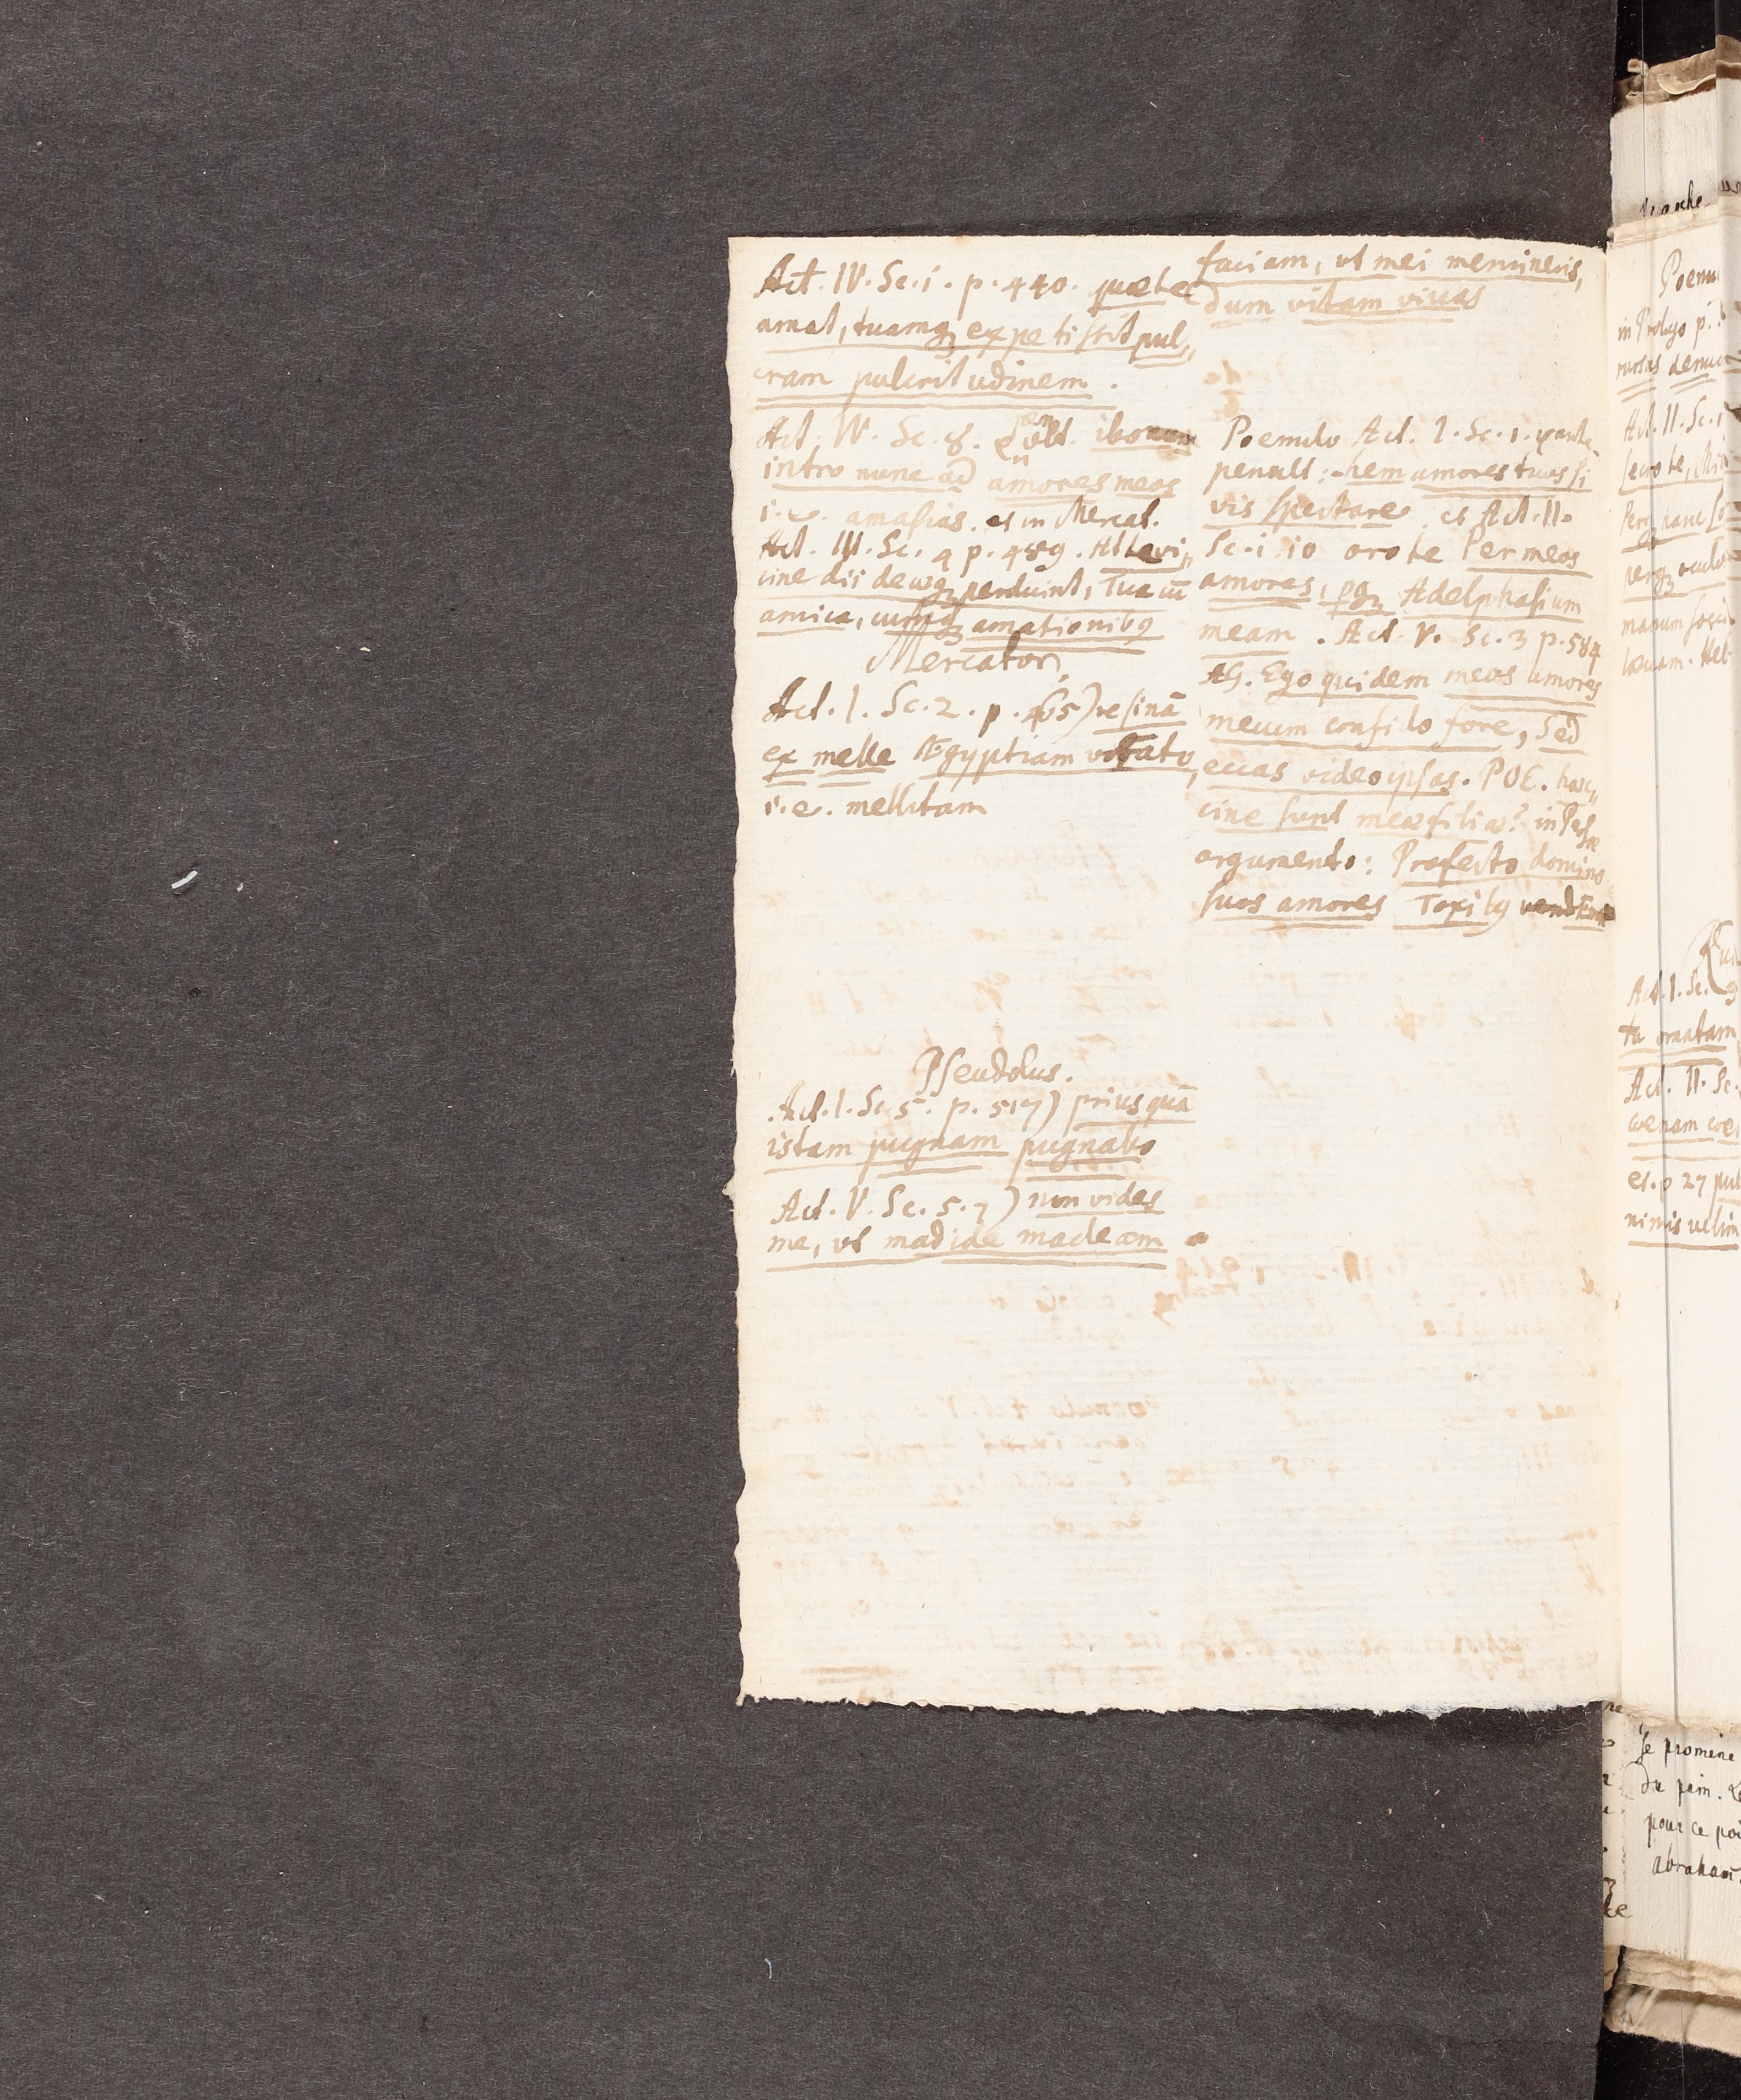 Act. IV. Sc. i. p. 440. quæ te
amat, tuamq; expetissit pul„
cram pulcritudinem.
Act. IV. Sc. 8. ibo
intro nunc ad amores meos
i. e. amasias. et in Mercat.
Act. III. Sc. 4 p. 489. At te vi„
cine dii deæq; perduint, Tua cū
amica, cumq; amationibq
Mercator
Act. I. Sc. 2. p. 465) resinā
ex melle Ægyptiam vorato,
i. e. mellitam
Pseudolus.
Act. I. Sc. 5. p. 517) priusquā
istam pugnam pugnabo
Act. V. Sc. 5. 7) non vides
me, ut madide madeam
faciam, ut mei memineris,
dum vitam vivas
Poenulo Act. I. Sc. 1.
penult: hem amores tuos si
vis spectare et Act. II.
Sc. i. io oro te Per meos
amores, pq; Adelphasium
meam. Act. V. Sc. 3 p. 584
AG. Ego quidem meos amores
mecum confido fore, Sed
eccas video ipsas. POE. hæc„
cine sunt meæ filiæ? in Persæ
argumento: Profecto domino
suos amores Toxilq
Poenu
in Prologo p.
rursus denuo
Act. II. Sc. 1
manum
lævam. Het
Rud
Act. I. Sc. 3
ta ornatam
Act. II. Sc.
coenam coe
et. p 27 pul
nimis velim
Je promene
du pain.
pour ce poi
abraham